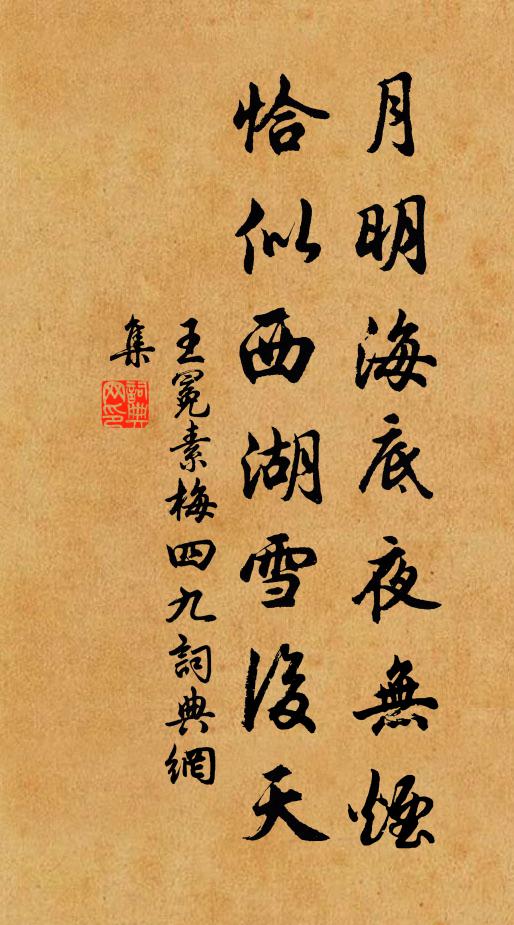 月明海底夜無煙
恰似西湖雪後天
王冕素梅四九詞典網
集
詞典網印